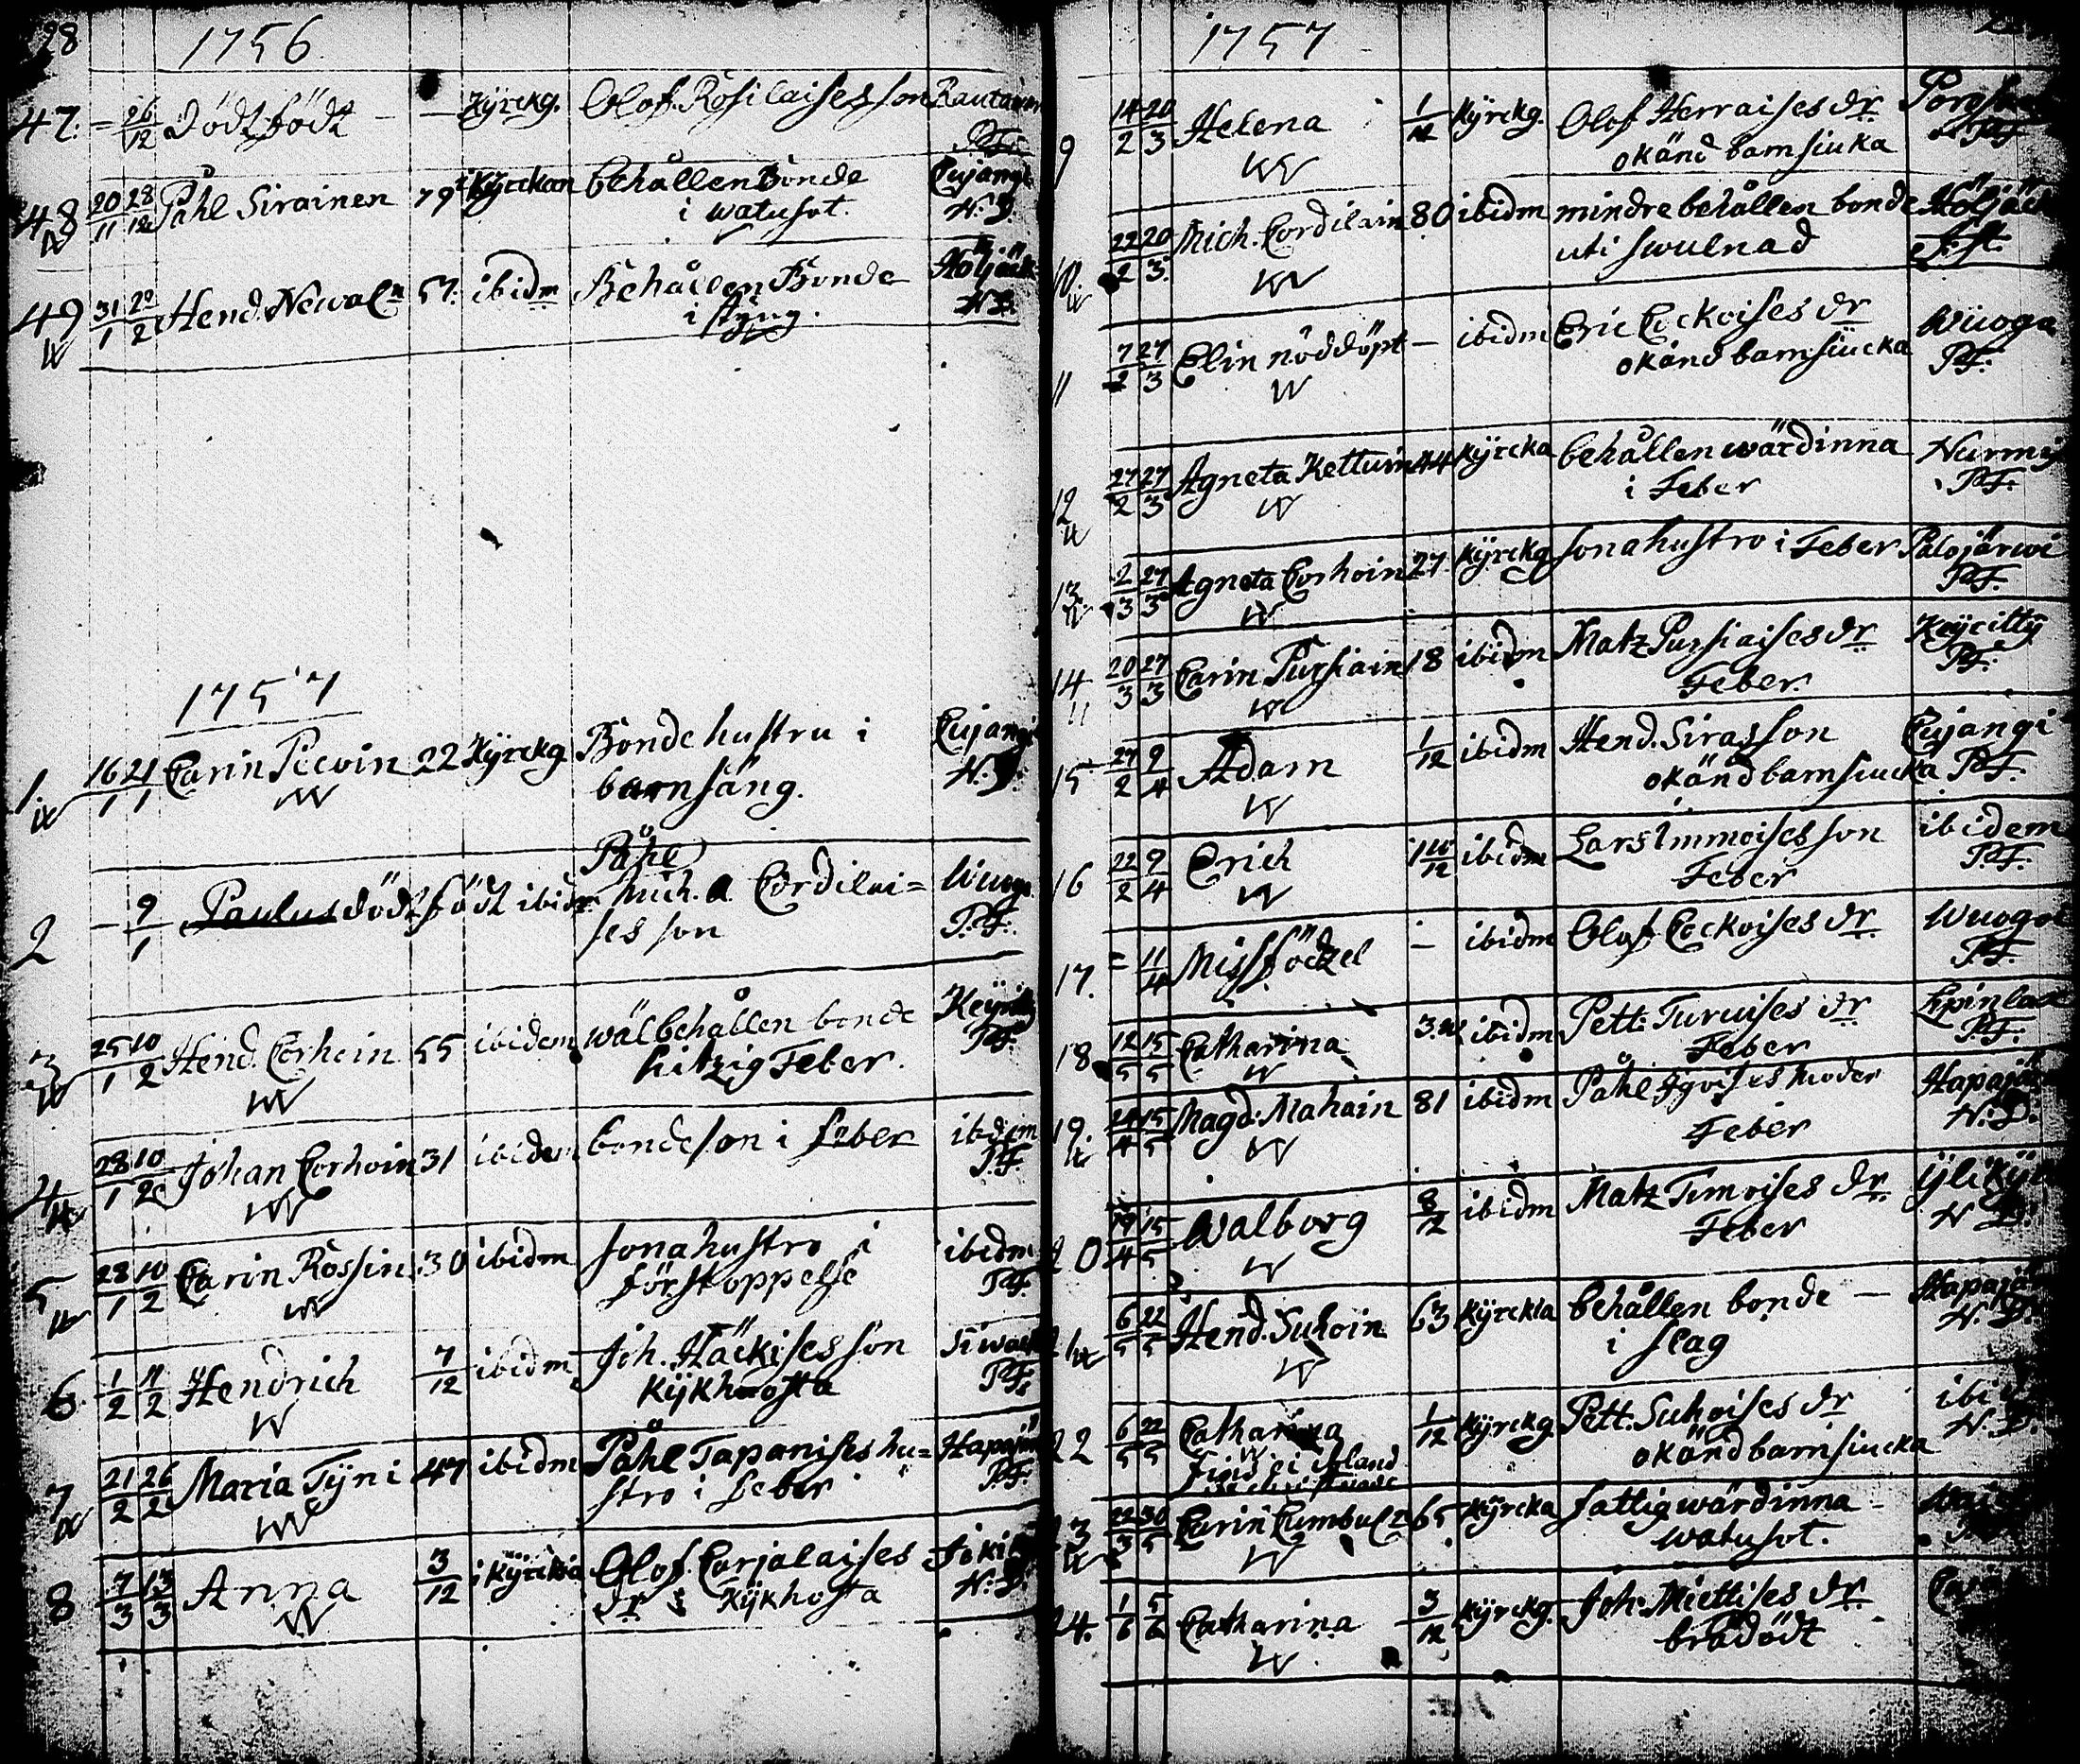 28 1756
47. – 26/12 Dödfödt – – Kÿrckg. Olof Rosilaises son
48 20/11 28/12 Påhl Sirainen 79 i Kÿrckan behållen Bonde Cujangi
i watusot. N.S.
49 31/1 20/2 Hend. Newaln 57. ibidm Behållen Bonde
i stÿng. N.S.
1757
1. 16/1 21/1 Carin Peevin 22 Kÿrckg Bonde hustru i Cujangi
barnsäng. N.S.
Påhl
2 – 9/1 Paulus dödfödt ibidm Mich. a Cordilai=
ses son P.F.
3 25/1 10/2 Hend. Corhoin 55 ibidem wälbehållen bonde
hitzig Feber. P.F.
4 28/1 10/2 Johan Corhoin 31 ibidem bondeson i feber ibidem
P.F.
5 28/1 10/2 Carin Rossin 30 ibidm sonahustro i ibidm
förstoppelse P.F.
6. 1/2 11/2 Hendrich 7/12 ibidm Joh. Häckises son
Kÿkhosta P.F.
7 21/2 26/2 Maria Tÿni 47 ibidm Påhl Tapanises hu=
stro i feber P.F.
8 7/3 13/3 Anna 3/12 i Kÿrckia Olof Carjalaises
dr Kÿkhosta N.S.
1757
9 14/2 20/3 Helena 1/12 Kÿrckg. Olof Herraises dr
okänd barnsiuka P.F.
10. 22/2 20/3 Mich. Cordilain 80 ibidm mindre behållen bonde
uti swulnad
11 7/2 27/3 Elin nöddöpt – ibidm Eric Cockoises dr Wuoga
okänd barnsiucka P.F.
12 27/2 27/3 Agneta Kettuin 44 Kÿrcka behållen wärdinna
i Feber P.F.
13 2/3 27/3 Agneta Corhoin 27 Kÿrckg sonahustro i Feber Palojärwi
P.F.
14 20/3 27/3 Carin Pursiain 18 ibidm Matz Pursiaises dr Keÿcittÿ
Feber. P.F.
15 27/2 9/4 Adam 1/12 ibidm Hend. Siras son Cujangi
okänd barnsiucka P.F.
16 22/2 9/4 Erich 1 10/12 ibidm Lars Immoises son ibidem
Feber P.F.
17. = 11/4 Missfödzel – ibidm Olof Cockoises dr
P.F.
18 12/5 15/5 Catharina 3. ibidm Pett. Turuises dr
Feber P.F.
19. 15/5 Magd. Mahain 81 ibidm Påhl Igoises moder
Feber N.S.
20 19/4 15/5 Walborg 8/12 ibidm Matz Timoises dr
Feber N.S.
6/5 22/5 Hend. Suhoin 63 Kÿrckia behållen bonde –
i slag N.S.
22 6/5 22/5 Catharina 1/12 Kÿrckg Pett. Suhoises dr
okänd barnsiucka N.S.
22/3 30/5 Carin 65 Kÿrcka fattig wärdinna –
watusot.
24. 1/6 5/6 Catharina 3/12 Kÿrckg. Joh. Miettises dr
brådödt